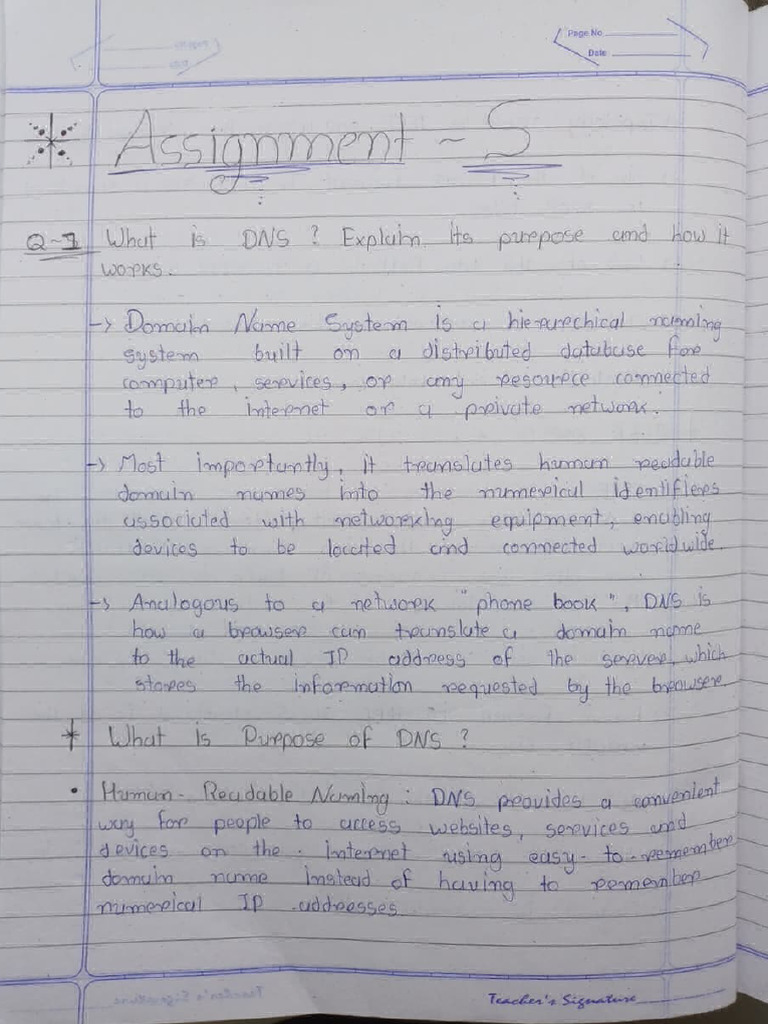 Page No
Date
Assignment - 5
Q-1 What is DNS ? Explain its purpose and how it
works.
→ Domain Name System is a hierarchical naming
system built on a distributed database for
computer, services, or any resource connected
to the internet or a private network.
→ Most importantly, it translates human readable
domain names into the numerical identifiers
associated with networking equipment, enabling
devices to be located and connected worldwide.
→ Analogous to a network "phone book", DNS is
how a browser can translate a domain name
to the actual IP address of the server, which
stores the information requested by the browser.
* What is Purpose of DNS ?
• Human-Readable Naming : DNS provides a convenient
way for people to access websites, services and
devices on the internet using easy-to-remember
domain name instead of having to remember
numerical IP addresses
Teacher's Signature